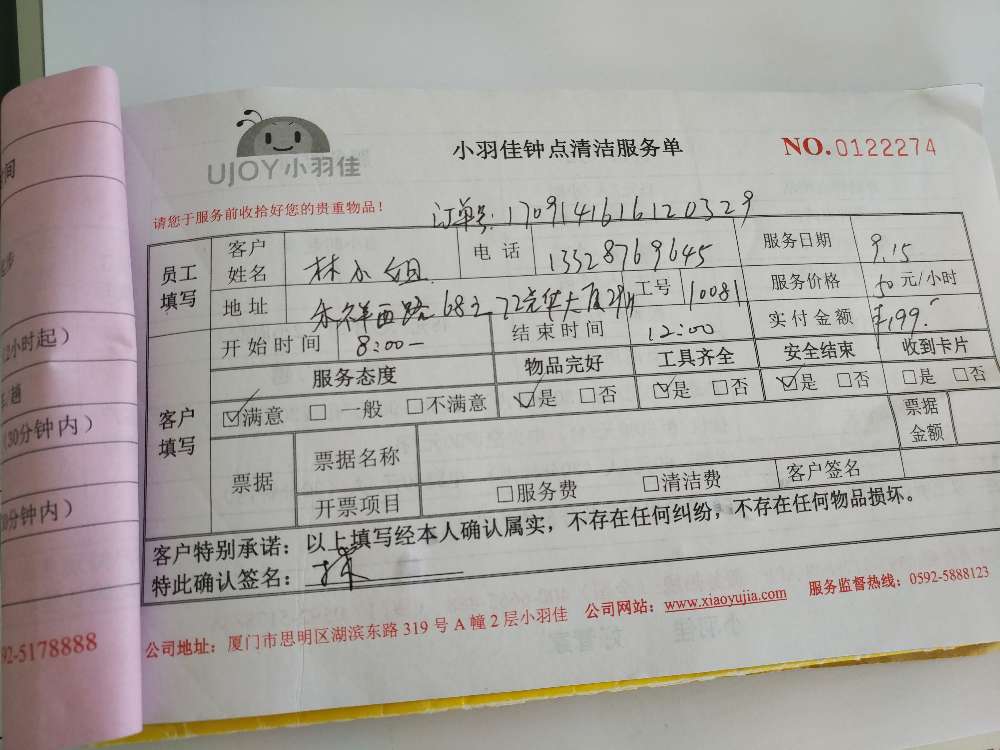 UJOY小羽佳
小羽佳钟点清洁服务单
NO.0122274
请您于服务前收拾好您的贵重物品！
订单号：1709141616120329
员工填写 客户姓名 林小姐 电话 13328769645 服务日期 9.15
地址 禾祥西路68之72 工号 10081 服务价格 50元/小时
开始时间 8:00- 结束时间 12:00 实付金额 ￥199.
客户填写 服务态度 物品完好 工具齐全 安全结束 收到卡片
☑满意 □一般 □不满意 ☑是 □否 ☑是 □否 ☑是 □否 □是 □否
票据 票据名称 票据金额
开票项目 □服务费 □清洁费 客户签名
客户特别承诺：以上填写经本人确认属实，不存在任何纠纷，不存在任何物品损坏。
特此确认签名：林
公司地址：厦门市思明区湖滨东路319号A幢2层小羽佳 公司网站：www.xiaoyujia.com 服务监督热线：0592-5888123
间
2小时起）
/趟
（30分钟内）
0分钟内）
92-5178888